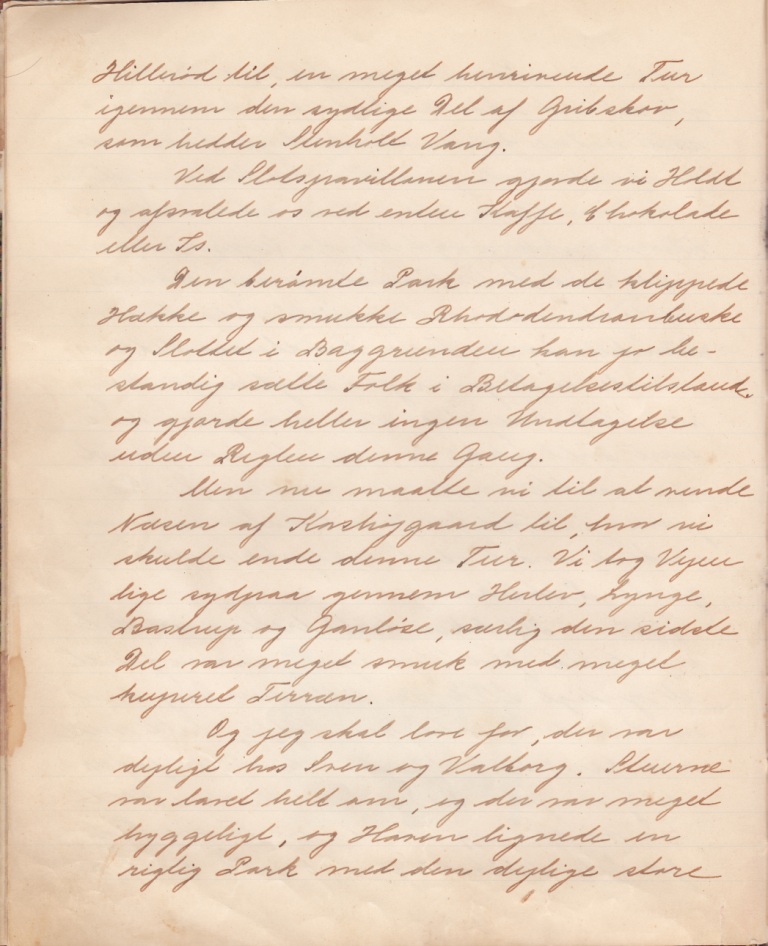 Hillerød til, en meget henrivende Tur
igennem den sydlige Del af Gribskov,
som hedder Stenholt Vang.
Ved Slotspavillonen gjorde vi Holdt
og afsvalede os ved enten Kaffe, Chokolade
eller Is.
Den berømte Park med de klippede
Hække og smukke Rhododendronbuske
og Slottet i Baggrunden kan jo be-
standig sætte Folk i Betagelsestilstand.
og gjorde heller ingen Undtagelse
uden Reglen denne Gang.
Men nu maatte vi til at vende
Næsen af Korshøjgaard til, hvor vi
skulde ende denne Tur. Vi tog Vejen
lige sydpaa gennem Herlev, Lynge,
Bastrup og Ganløse, særlig den sidste
Del var meget smuk med meget
kuperet Terræn.
Og jeg skal love for, der var
dejligt hos Sven og Valborg. Stuerne
var lavet helt om, og der var meget
hyggeligt, og Haven lignede en
rigtig Park med den dejlige store